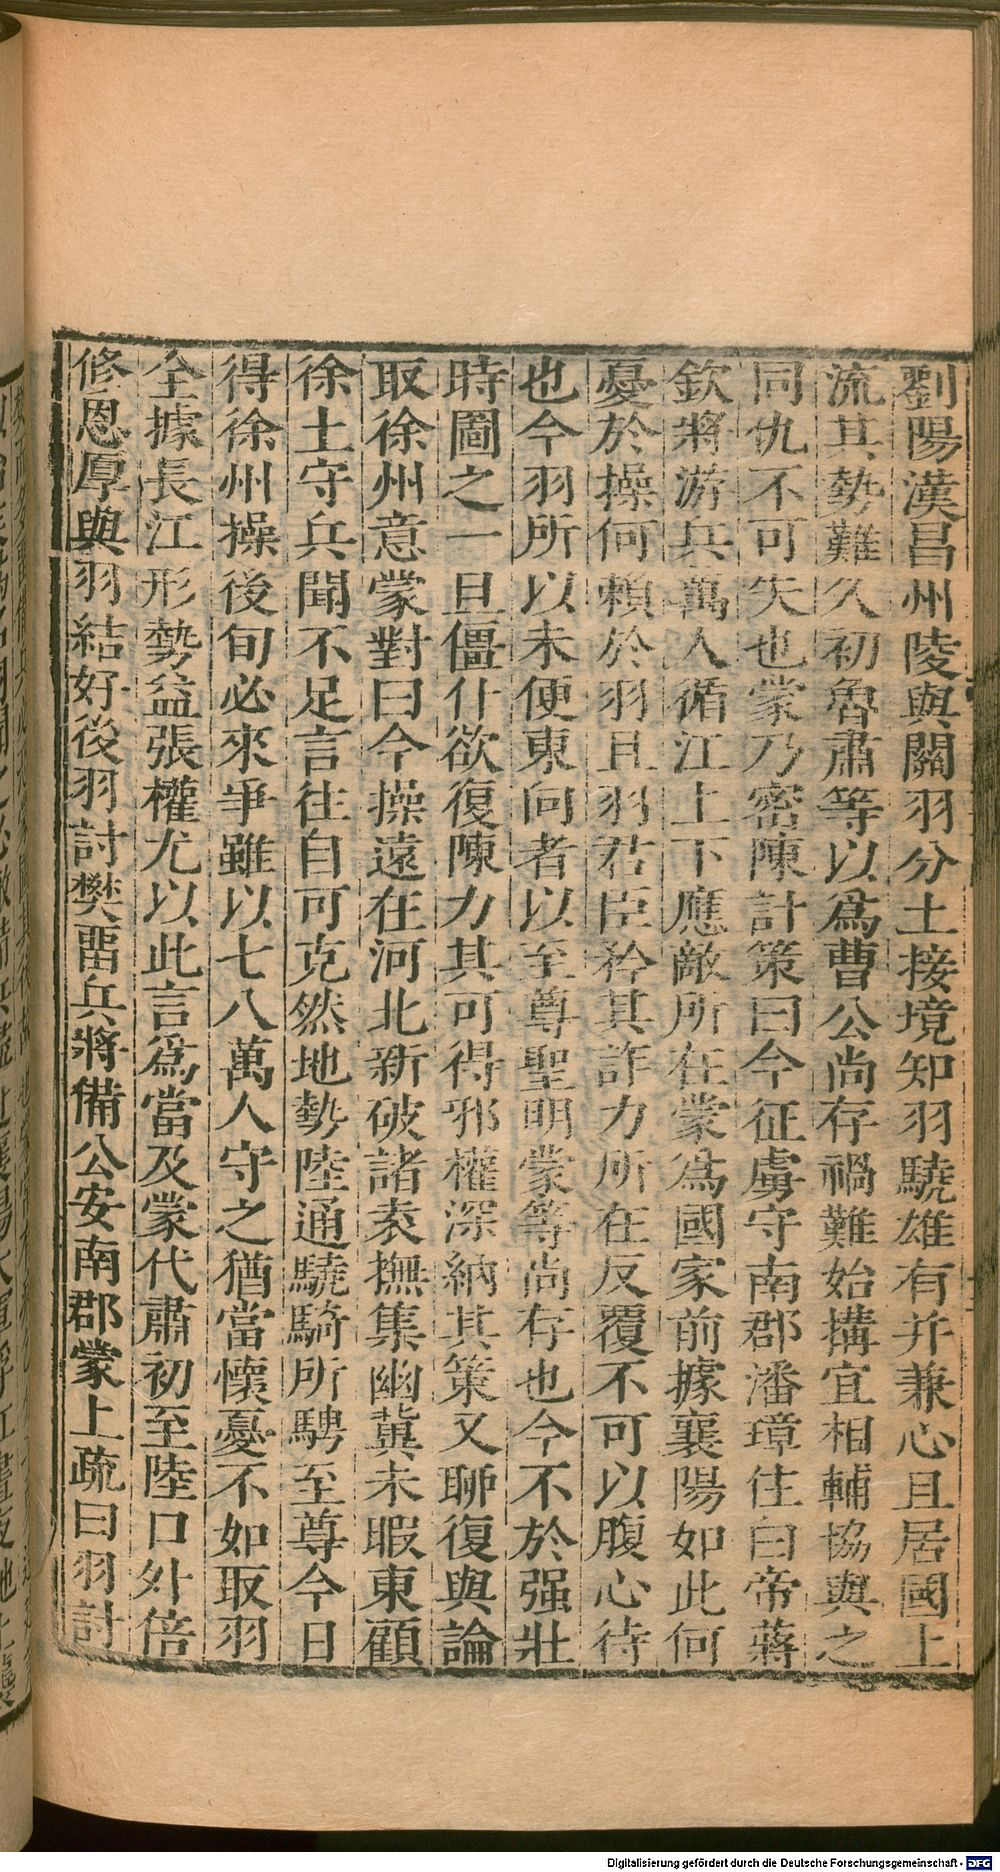 劉陽漢昌州陵與關羽分土接境知羽驍雄有并兼心且居國上
流其勢難久初魯肅等以爲曹公尚存禍難始搆宜相輔協與之
同仇不可失也蒙乃密陳計策曰今征虜守南郡潘璋住白帝蔣
欽將游兵萬人循江上下應敵所在蒙爲國家前據襄陽如此何
憂於操何賴於羽且羽君臣矜其詐力所在反覆不可以腹心待
也今羽所以未便東向者以至尊聖明蒙等尚存也今不於强壯
時圖之一旦僵仆欲復陳力其可得邪權深納其策又聊復與論
取徐州意蒙對曰今操遠在河北新破諸袁撫集幽冀未暇東顧
徐土守兵聞不足言往自可克然地勢陸通驍騎所騁至尊今日
得徐州操後旬必來爭雖以七八萬人守之猶當懷憂不如取羽
全據長江形勢益張權尤以此言爲當及蒙代肅初至陸口外倍
修恩厚與羽結好後羽討樊畱兵將備公安南郡蒙上疏曰羽討
Digitalisierung gefördert durch die Deutsche Forschungsgemeinschaft - DFG